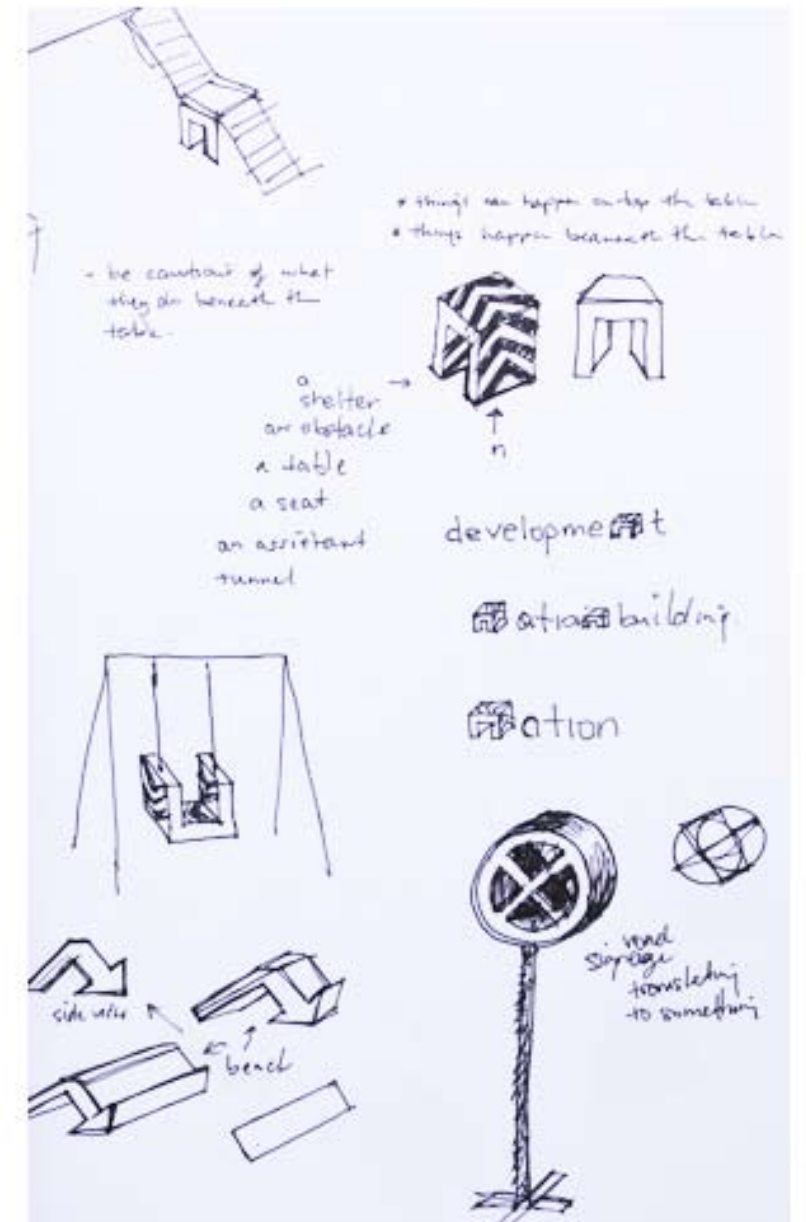 • things can happen on top the table
• things happen beaneath the table
- be cautious of what
they do beneath the
table.
a
shelter
an obstacle
a table
a seat
an assistant
tunnel
n
development
nation building
nation
side view
bench
road
signage
translating
to something